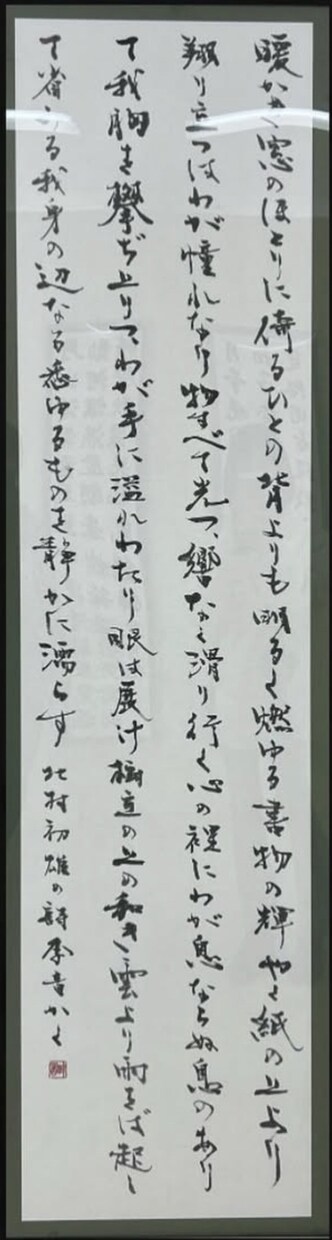 暖かき窓のほとりに倚るひとの背よりも明るく燃ゆる書物の輝やく紙の上より
翔り立つはわが憧れなり物すべて光つ、響なく滑り行く心の裡にわが息ならぬ息のあり
て我胸を攀ぢ上りてわが手に溢れわたり眼は展け樹立の上の和き雲より雨をば起し
て省みる我身の辺なる悉ゆるものを静かに濡らす 北村初雄の詩 かく